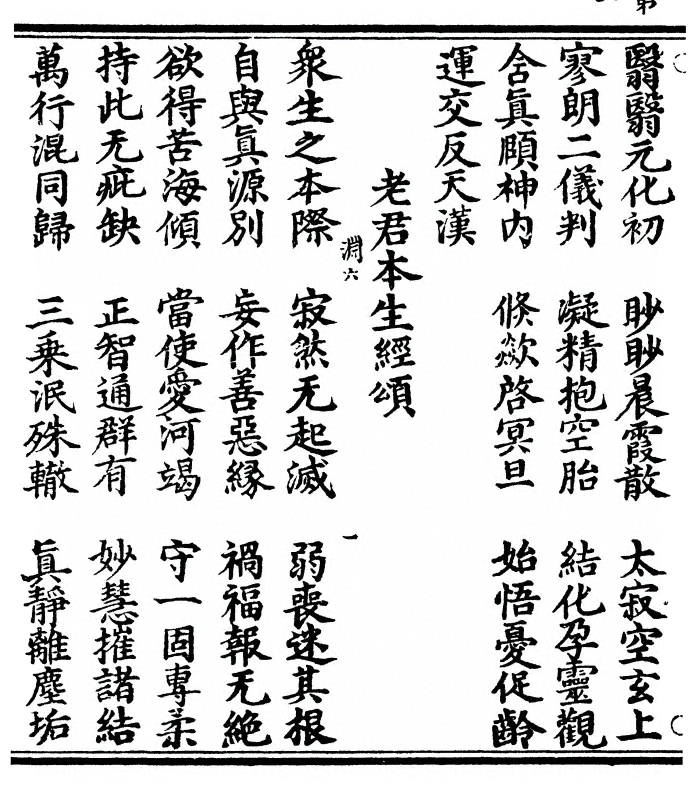 翳翳元化初　眇眇晨霞散　太寂空玄上
寥朗二儀判　凝精抱空胎　結化孕靈觀
含眞頤神内　倏欻啓冥旦　始悟憂促齡
運交反天漢
老君本生經頌
淵六
衆生之本際　寂然无起滅　弱喪迷其根
自與眞源別　妄作善惡緣　禍福報无絶
欲得苦海傾　當使愛河竭　守一固專柔
持此无疵缺　正智通群有　妙慧摧諸結
萬行混同歸　三乗泯殊轍　眞靜離塵垢